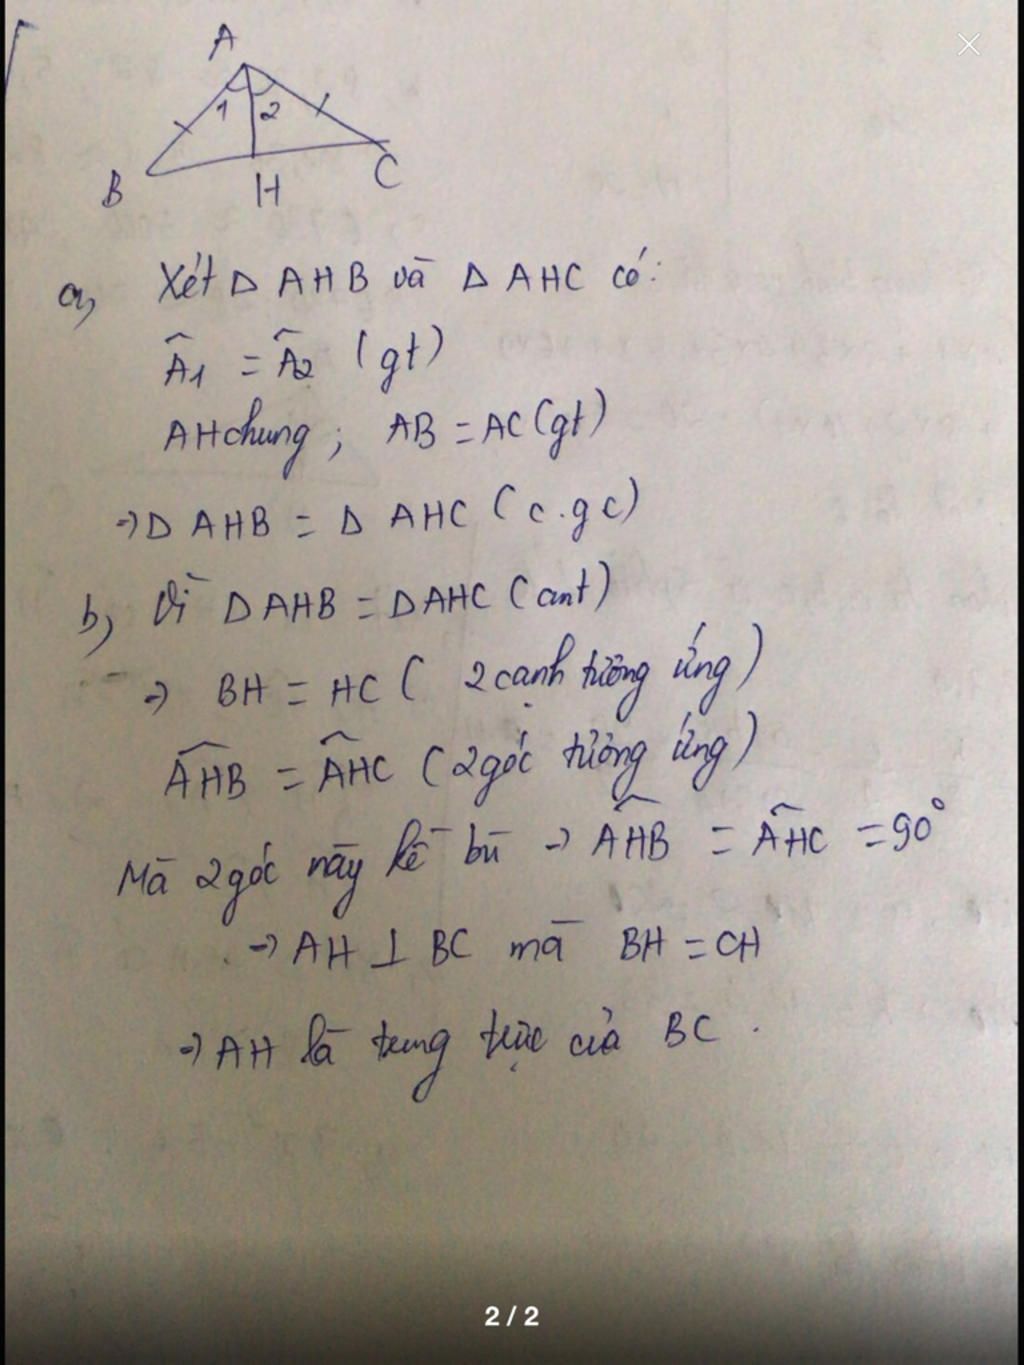 A
1 2
B H C
a, Xét Δ AHB và Δ AHC có:
Â1 = Â2 (gt)
AH chung ; AB = AC (gt)
→ Δ AHB = Δ AHC ( c.g c)
b, Vì Δ AHB = Δ AHC (cmt)
→ BH = HC ( 2 cạnh tương ứng )
AHB = AHC ( 2 góc tương ứng )
Mà 2 góc này kề bù → AHB = AHC = 90°
→ AH ⊥ BC mà BH = CH
→ AH là trung trực của BC .
2 / 2